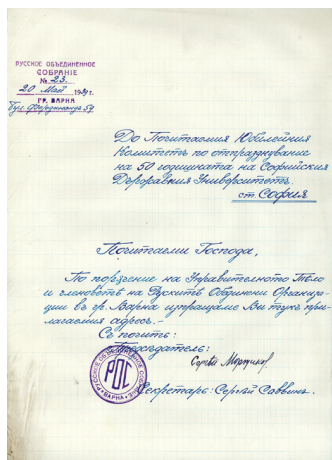 РУССКОЕ ОБЪЕДИНЕННОЕ
СОБРАНIЕ
№ 23.
20 Май 1939 г.
ГР. ВАРНА
Бул. Фердинандъ 54
До Почитаемия Юбилейния
Комитетъ по отпразднуване
на 50 годишната на Софийския
Държавния Университетъ.
ст. София
Почитаеми Господа,
По порѫчение на Управителното Тѣло
и членовѣтѣ на Рускитѣ Обединени Организа-
ции в гр. Варна изпращаме Ви тукъ при-
лагаемия адресъ.—
Съ почитъ:
Председатель:
Секретарь: Сергѣй Саввинъ.
РУССКОЕ ОБЪЕДИНЕННОЕ СОБРАНIЕ
РОС
ВАРНА